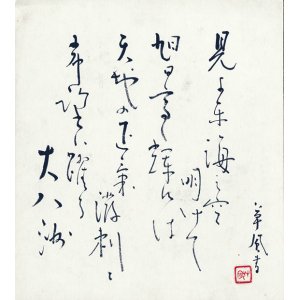 見よ東海之空
明けて
旭日高く輝けは
天地の正気
溌剌と
希望は躍る
大八洲